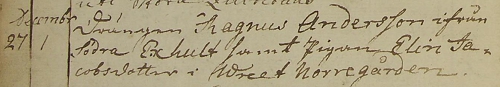 Decembr Drängen Magnus Andersson ifrån
27 1 Södra Ekhult samt Pigan Elin Ja=
cobsdotter i Wreet Norregården.